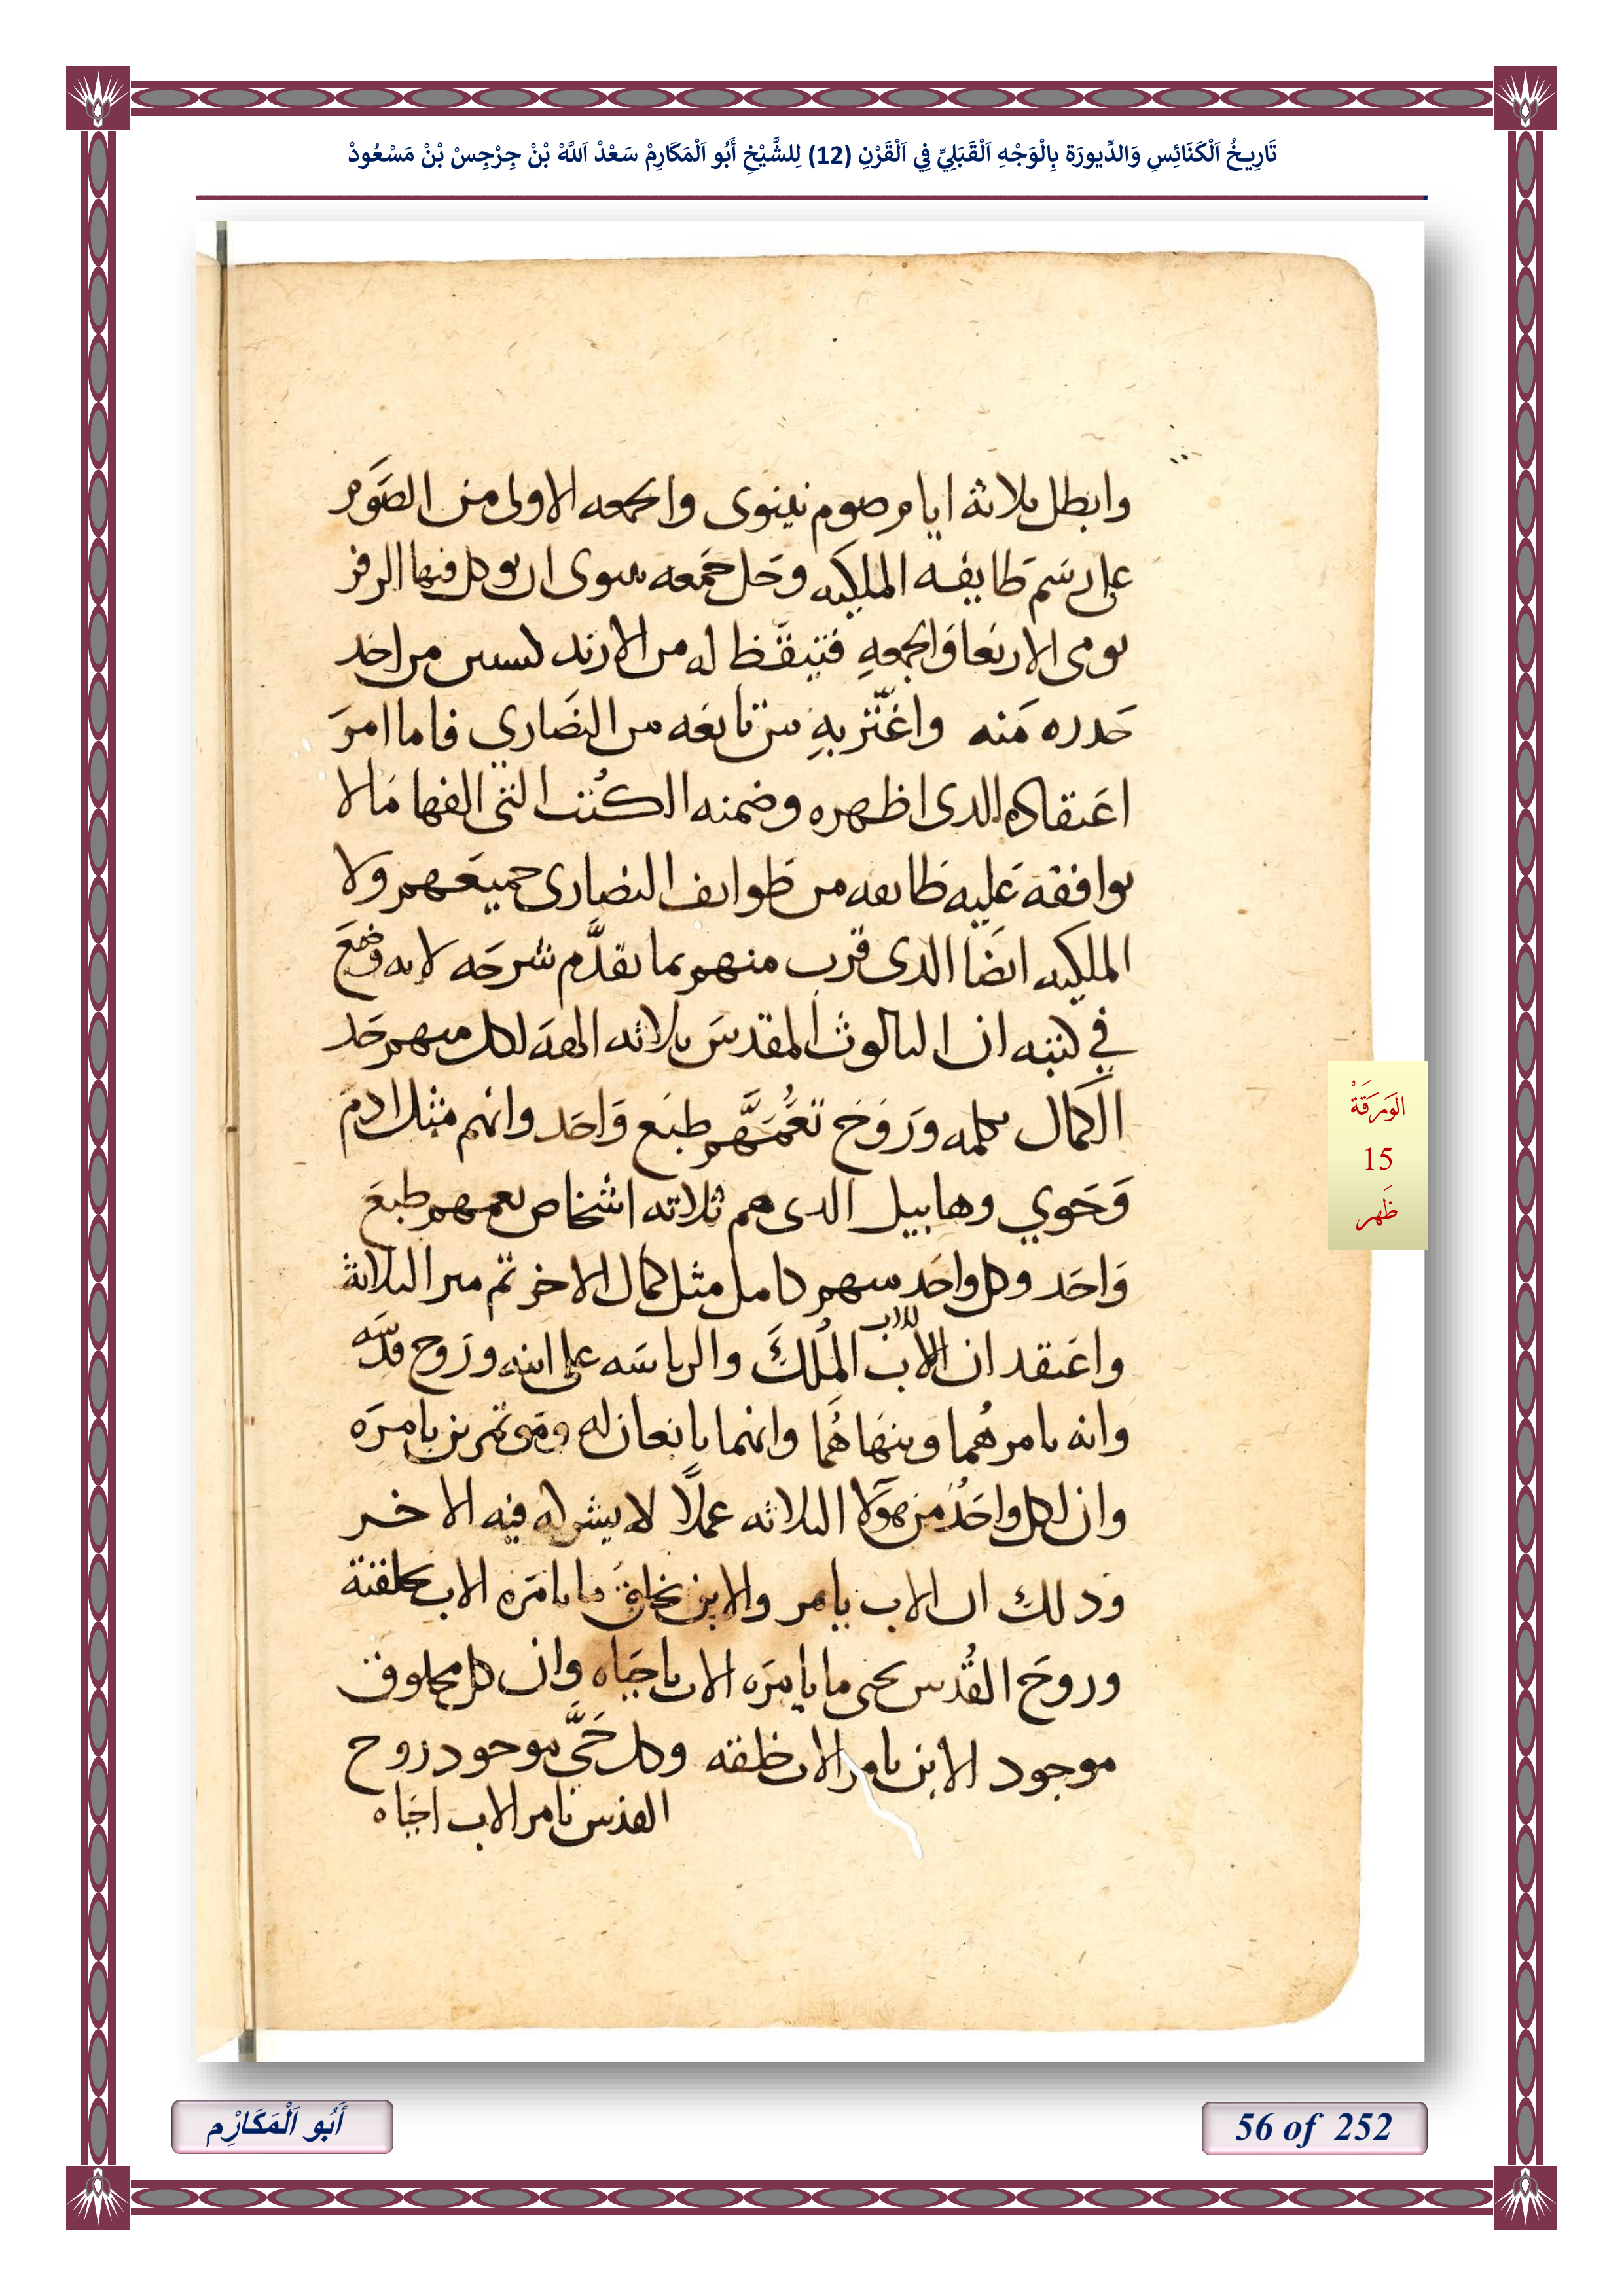 تَارِيخُ اَلْكَنَائِسِ وَالدِّيورَة بِالْوَجْهِ اَلْقَبَلِيِّ فِي اَلْقَرْنِ (12) لِلشَّيْخِ أَبُو اَلْمَكَارِمْ سَعْدْ اَللَّهْ بْنْ جِرْجِسْ بْنْ مَسْعُودْ
وابطل ثلاثة ايام صوم نينوى والجمعه الاولى من الصوم
على رسم طايفه الملكيه وحل جمعه سوى ان يوكل فيها الزفر
يومى الاربعا والجمعه فتيقظ له من الارند ليس من اخد
حدره منه واغتر به من تابعه من النصاري فاما امر
اعتقاده الدى اظهره وضمنه الكتب التى الفها مالا
يوافقه عليه طايفه من طوايف النصارى جميعهم ولا
الملكيه ايضا الدى قرب منهم بما تقدم شرحه لانه وضع
في كتبه ان الثالوث المقدس ثلاثه الهه لكل منهم حد
الكمال كلمه وروح تعمهم طبع واحد وانهم مثل ادم
وحوي وهابيل الدى هم ثلاثه اشخاص يعمهم طبع
واحد وكل واحد منهم كامل مثل كمال الاخر تم ميز الثلاثة
واعتقد ان للاب الملك والرياسه على ابنه وروح قدسه
وانه يامرهما وينهاهما وانهما يانعان له وموتمرين بامره
وان لكل واحد من هولا الثلاثه عملا لا يشركه فيه الاخر
ودلك ان الاب يامر والابن يخلق ما يامره الاب بخلقته
وروح القدس يحى ما يامره الاب باحياه وان كل مخلوق
موجود الابن بامر الاب خلقه وكل حي موجود روح
القدس بامر الاب احياه
الوَرَقَةْ
15
ظَهر
أَبُو اَلْمَكَارْم
56 of 252